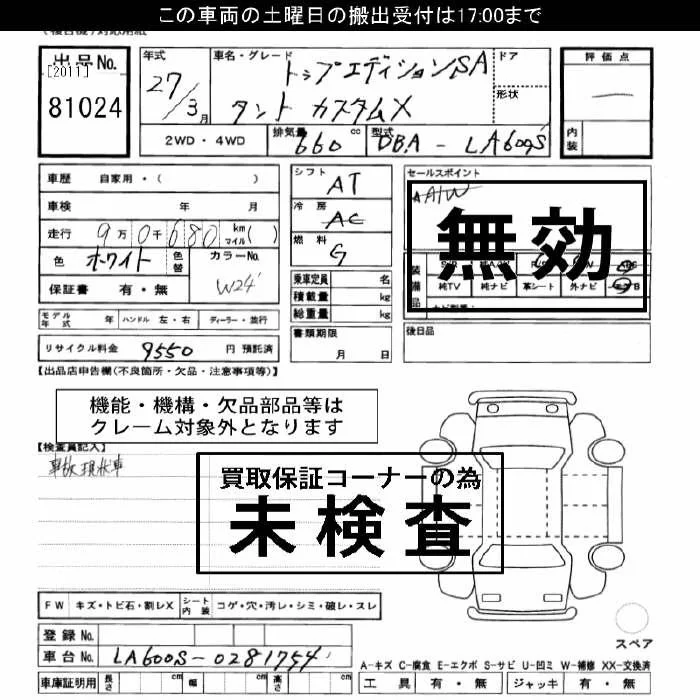 この車両の土曜日の搬出受付は17:00まで
出品No.
[2011]
81024
年式 27/3月
車名・グレード トップエディションSA
タント カスタムX
ドア
形状
評価点
内装
2WD・4WD 排気量 660 cc 型式 DBA - LA600S
車歴 自家用・( )
車検 年 月
走行 9万0千680 km マイル ( )
色 ホワイト 色替 カラーNo. W24
保証書 有・無
モデル年式 年 ハンドル 左・右 ディーラー・並行
リサイクル料金 9550 円 預託済
シフト AT
冷房 AC
燃料 G
乗車定員 名
積載量 kg
総重量 kg
書類期限
月 日
セールスポイント
A/W
無効
装備品
純TV 純ナビ 革シート 外ナビ
後日品
【出品店申告欄(不良箇所・欠品・注意事項等)】
機能・機構・欠品部品等は
クレーム対象外となります
【検査員記入】
事故現状車
買取保証コーナーの為
未検査
FW キズ・トビ石・割レX シート内装 コゲ・穴・汚レ・シミ・破レ・スレ
登録No.
車台No. LA600S-0281754
車庫証明用 長さ cm 幅 cm 高さ cm
スペア
A-キズ C-腐食 E-エクボ S-サビ U-凹ミ W-補修 XX-交換済
工具 有・無 ジャッキ 有・無